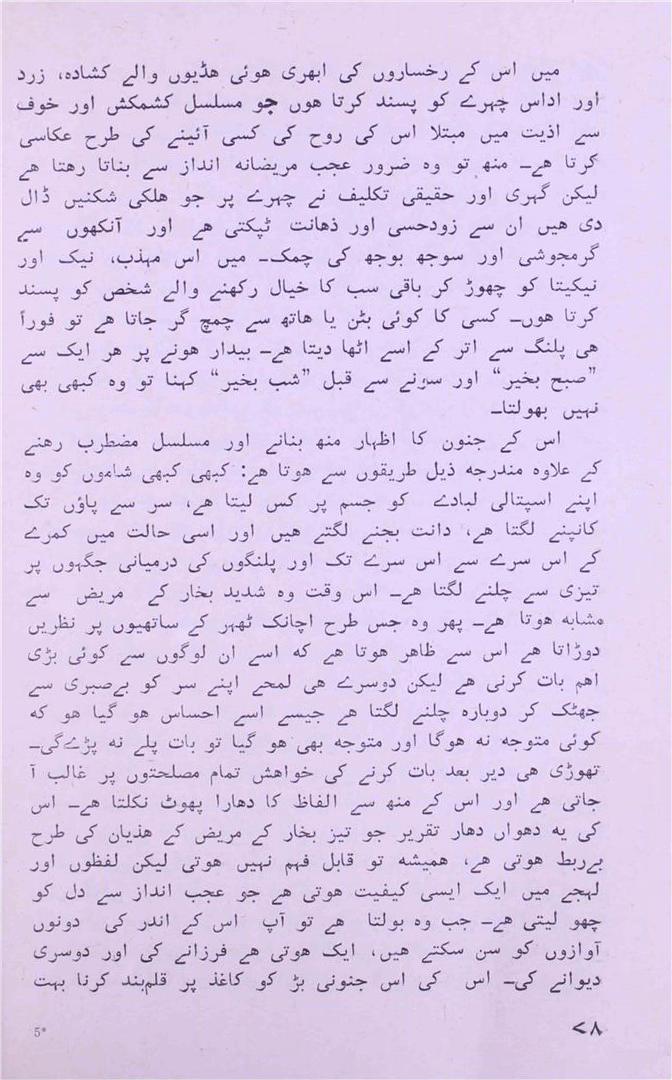 میں اس کے رخساروں کی ابھری ھوئی ھڈیوں والے کشادہ، زرد
اور اداس چہرے کو پسند کرتا ھوں جو مسلسل کشمکش اور خوف
سے اذیت میں مبتلا اس کی روح کی کسی آئینے کی طرح عکاسی
کرتا ھے۔ منھ تو وہ ضرور عجب مریضانہ انداز سے بناتا رھتا ھے
لیکن گہری اور حقیقی تکلیف نے چہرے پر جو ھلکی شکنیں ڈال
دی ھیں ان سے زودحسی اور ذھانت ٹپکتی ھے اور آنکھوں سے
گرمجوشی اور سوجھ بوجھ کی چمک۔ میں اس مہذب، نیک اور
نیکیتا کو چھوڑ کر باقی سب کا خیال رکھنے والے شخص کو پسند
کرتا ھوں۔ کسی کا کوئی بٹن یا ھاتھ سے چمچ گر جاتا ھے تو فوراً
ھی پلنگ سے اتر کے اسے اٹھا دیتا ھے۔ بیدار ھونے پر ھر ایک سے
”صبح بخیر“ اور سونے سے قبل ”شب بخیر“ کہنا تو وہ کبھی بھی
نہیں بھولتا۔
اس کے جنون کا اظہار منھ بنانے اور مسلسل مضطرب رھنے
کے علاوہ مندرجہ ذیل طریقوں سے ھوتا ھے: کبھی کبھی شاموں کو وہ
اپنے اسپتالی لبادے کو جسم پر کس لیتا ھے، سر سے پاؤں تک
کانپنے لگتا ھے، دانت بجنے لگتے ھیں اور اسی حالت میں کمرے
کے اس سرے سے اس سرے تک اور پلنگوں کی درمیانی جگہوں پر
تیزی سے چلنے لگتا ھے۔ اس وقت وہ شدید بخار کے مریض سے
مشابہ ھوتا ھے۔ پھر وہ جس طرح اچانک ٹھہر کے ساتھیوں پر نظریں
دوڑاتا ھے اس سے ظاھر ھوتا ھے کہ اسے ان لوگوں سے کوئی بڑی
اھم بات کرنی ھے لیکن دوسرے ھی لمحے اپنے سر کو بےصبری سے
جھٹک کر دوبارہ چلنے لگتا ھے جیسے اسے احساس ھو گیا ھو کہ
کوئی متوجہ نہ ھوگا اور متوجہ بھی ھو گیا تو بات پلے نہ پڑےگی۔
تھوڑی ھی دیر بعد بات کرنے کی خواھش تمام مصلحتوں پر غالب آ
جاتی ھے اور اس کے منھ سے الفاظ کا دھارا پھوٹ نکلتا ھے۔ اس
کی یہ دھواں دھار تقریر جو تیز بخار کے مریض کے ھذیان کی طرح
بےربط ھوتی ھے، ھمیشہ تو قابل فہم نہیں ھوتی لیکن لفظوں اور
لہجے میں ایک ایسی کیفیت ھوتی ھے جو عجب انداز سے دل کو
چھو لیتی ھے۔ جب وہ بولتا ھے تو آپ اس کے اندر کی دونوں
آوازوں کو سن سکتے ھیں، ایک ھوتی ھے فرزانے کی اور دوسری
دیوانے کی۔ اس کی اس جنونی بڑ کو کاغذ پر قلم‌بند کرنا بہت
5* ۷۸